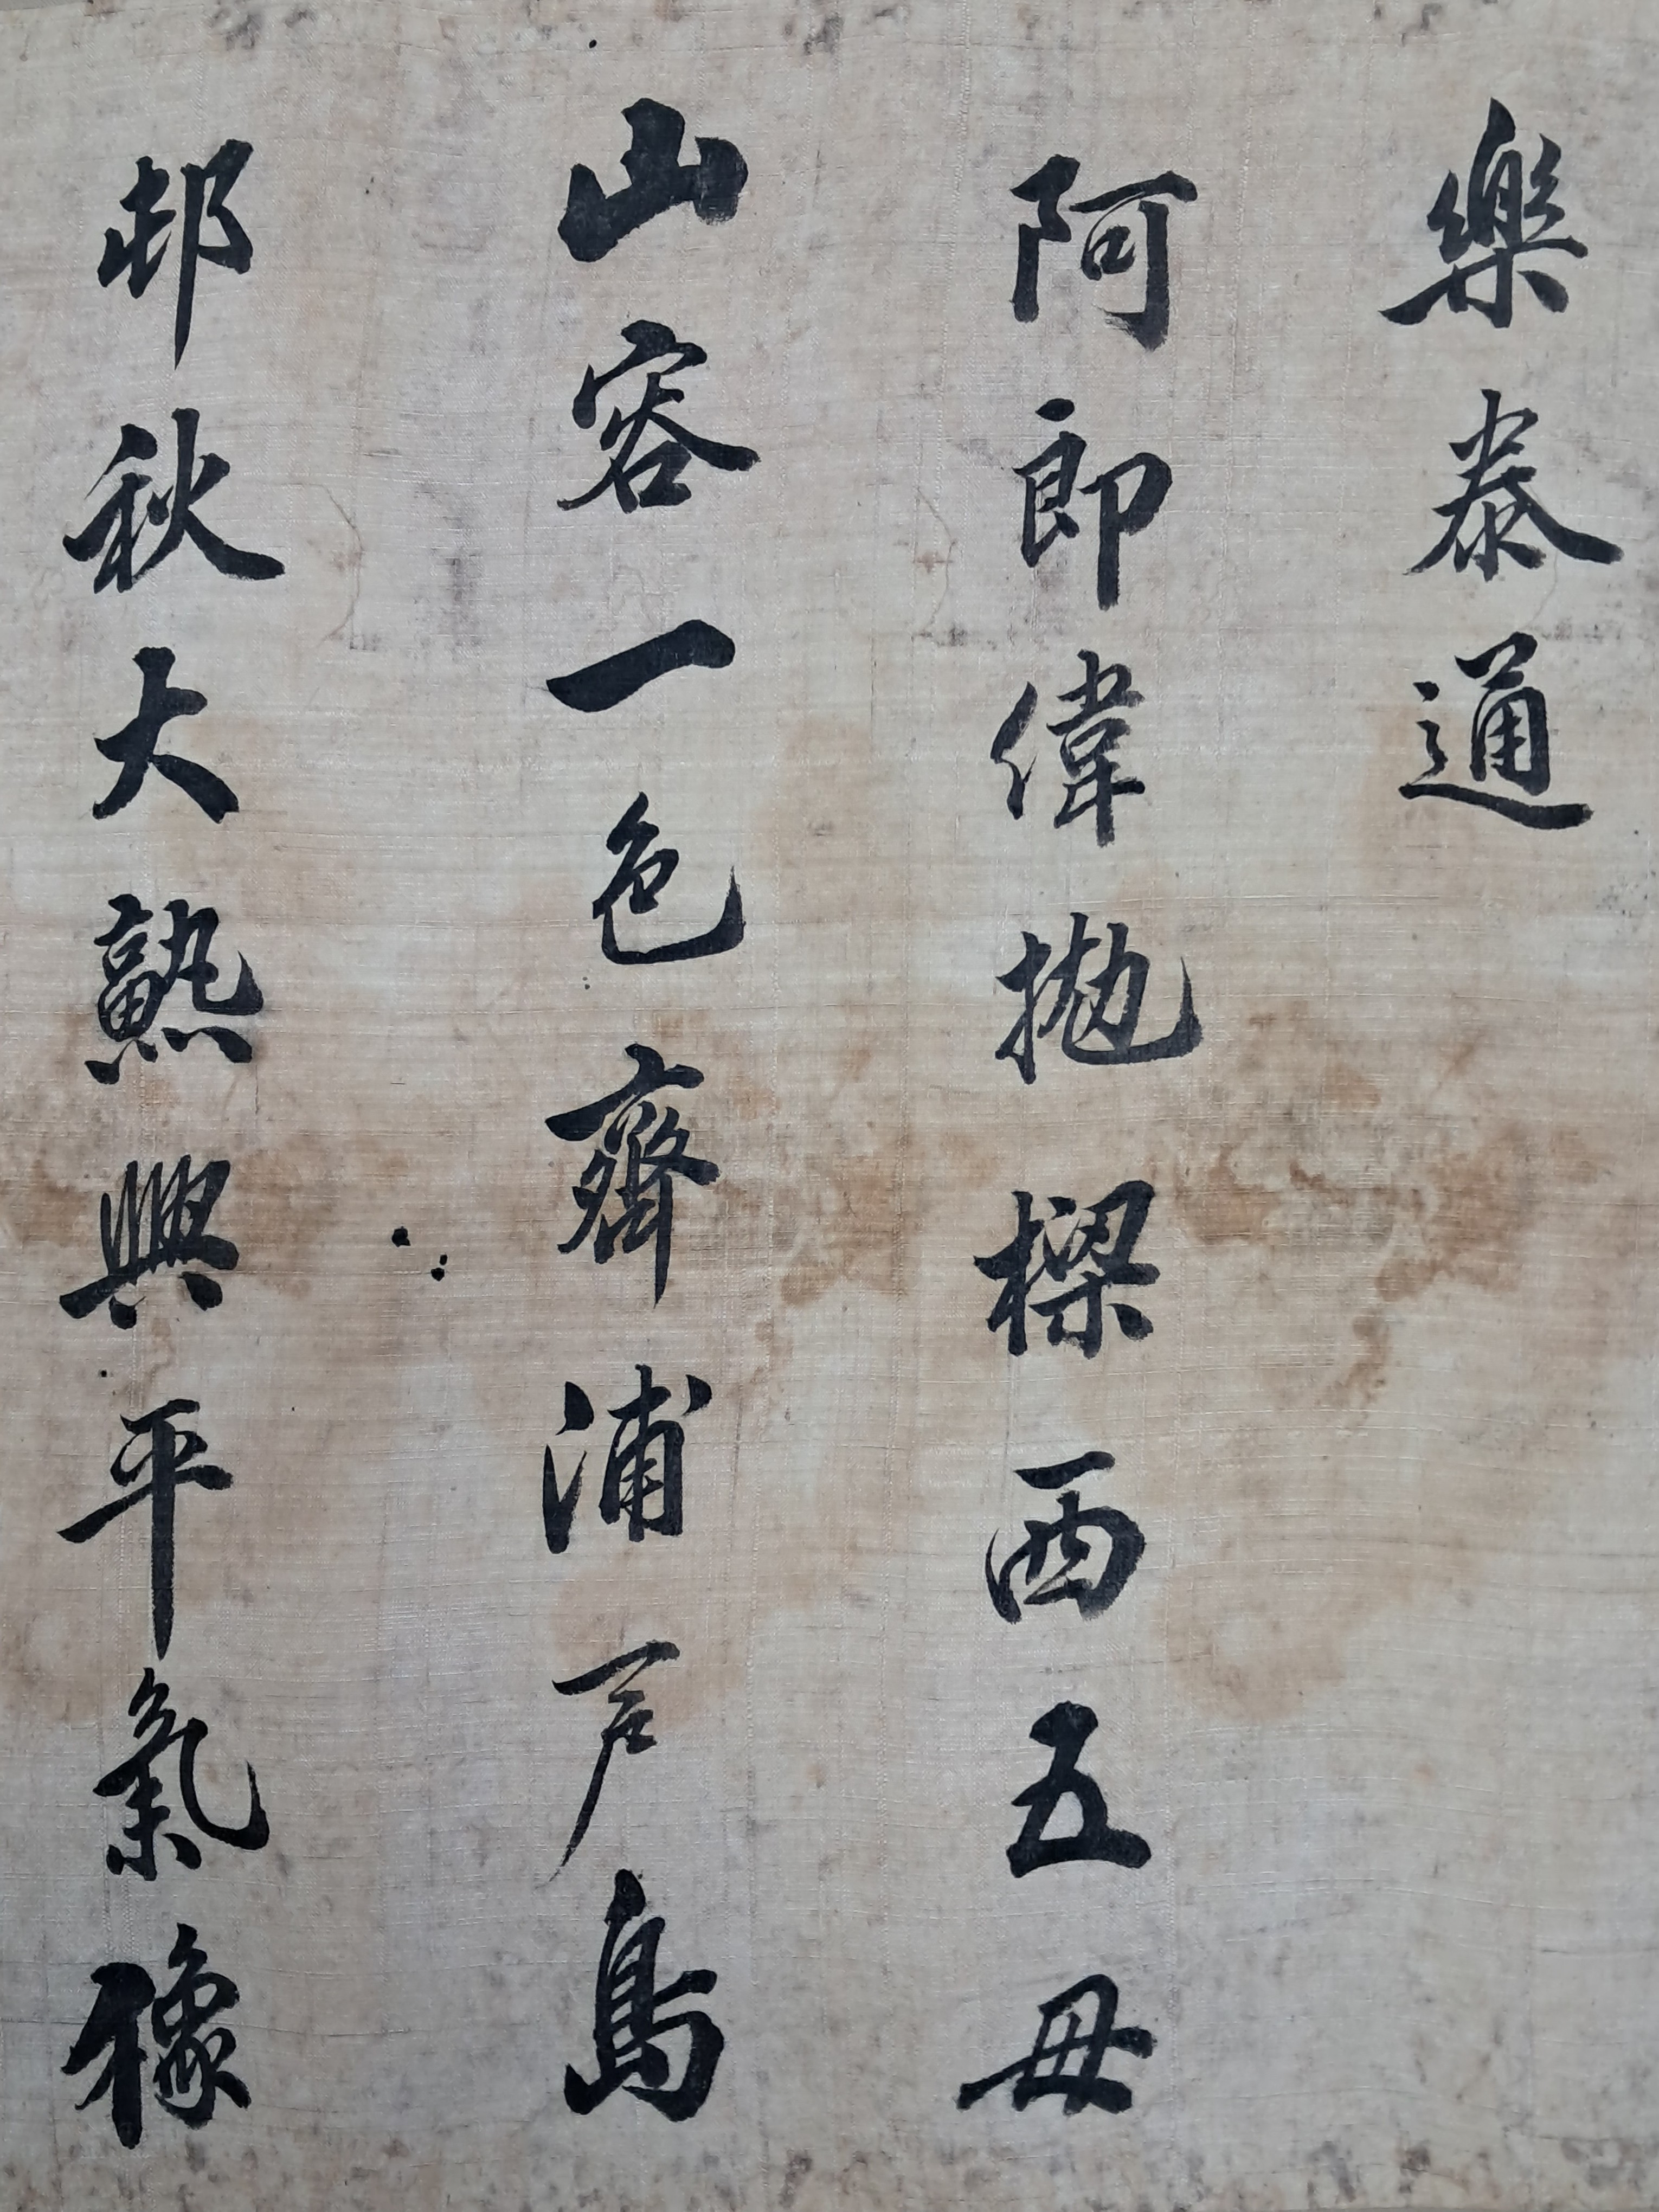 樂泰通
阿郎偉拋樑西五毋
山容一色齊浦戶島
邨秋大熟興平氣像